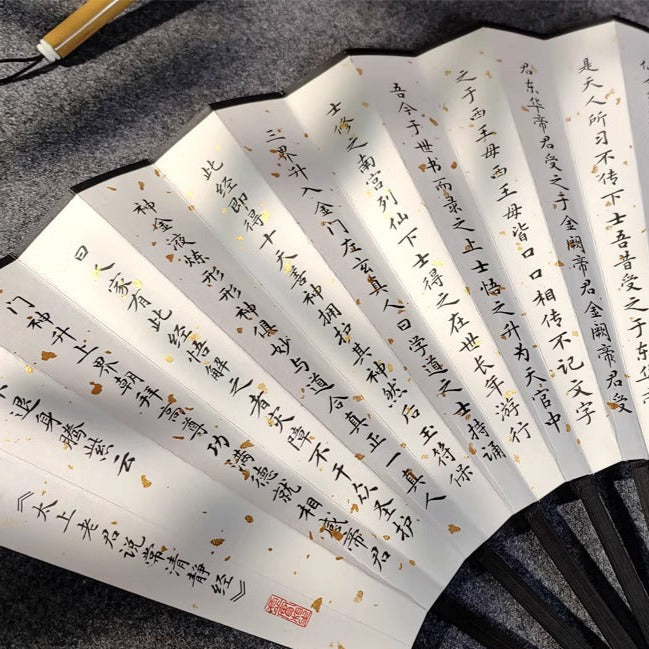 是天人所习不传下士吾昔受之于东华
君东华帝君受之于金阙帝君金阙帝君受
之于西王母西王母皆口口相传不记文字
吾今于世书而录之上士悟之升为天官中
士修之南宫列仙下士得之在世长年游行
三界升入金门左玄真人曰学道之士持诵
此经即得十天善神拥护其神然后玉符保
神金液炼形形神俱妙与道合真正一真人
曰人家有此经悟解之者灾障不干众圣护
门神升上界朝拜高尊功满德就相感帝君
退身腾紫云
《太上老君说常清静经》